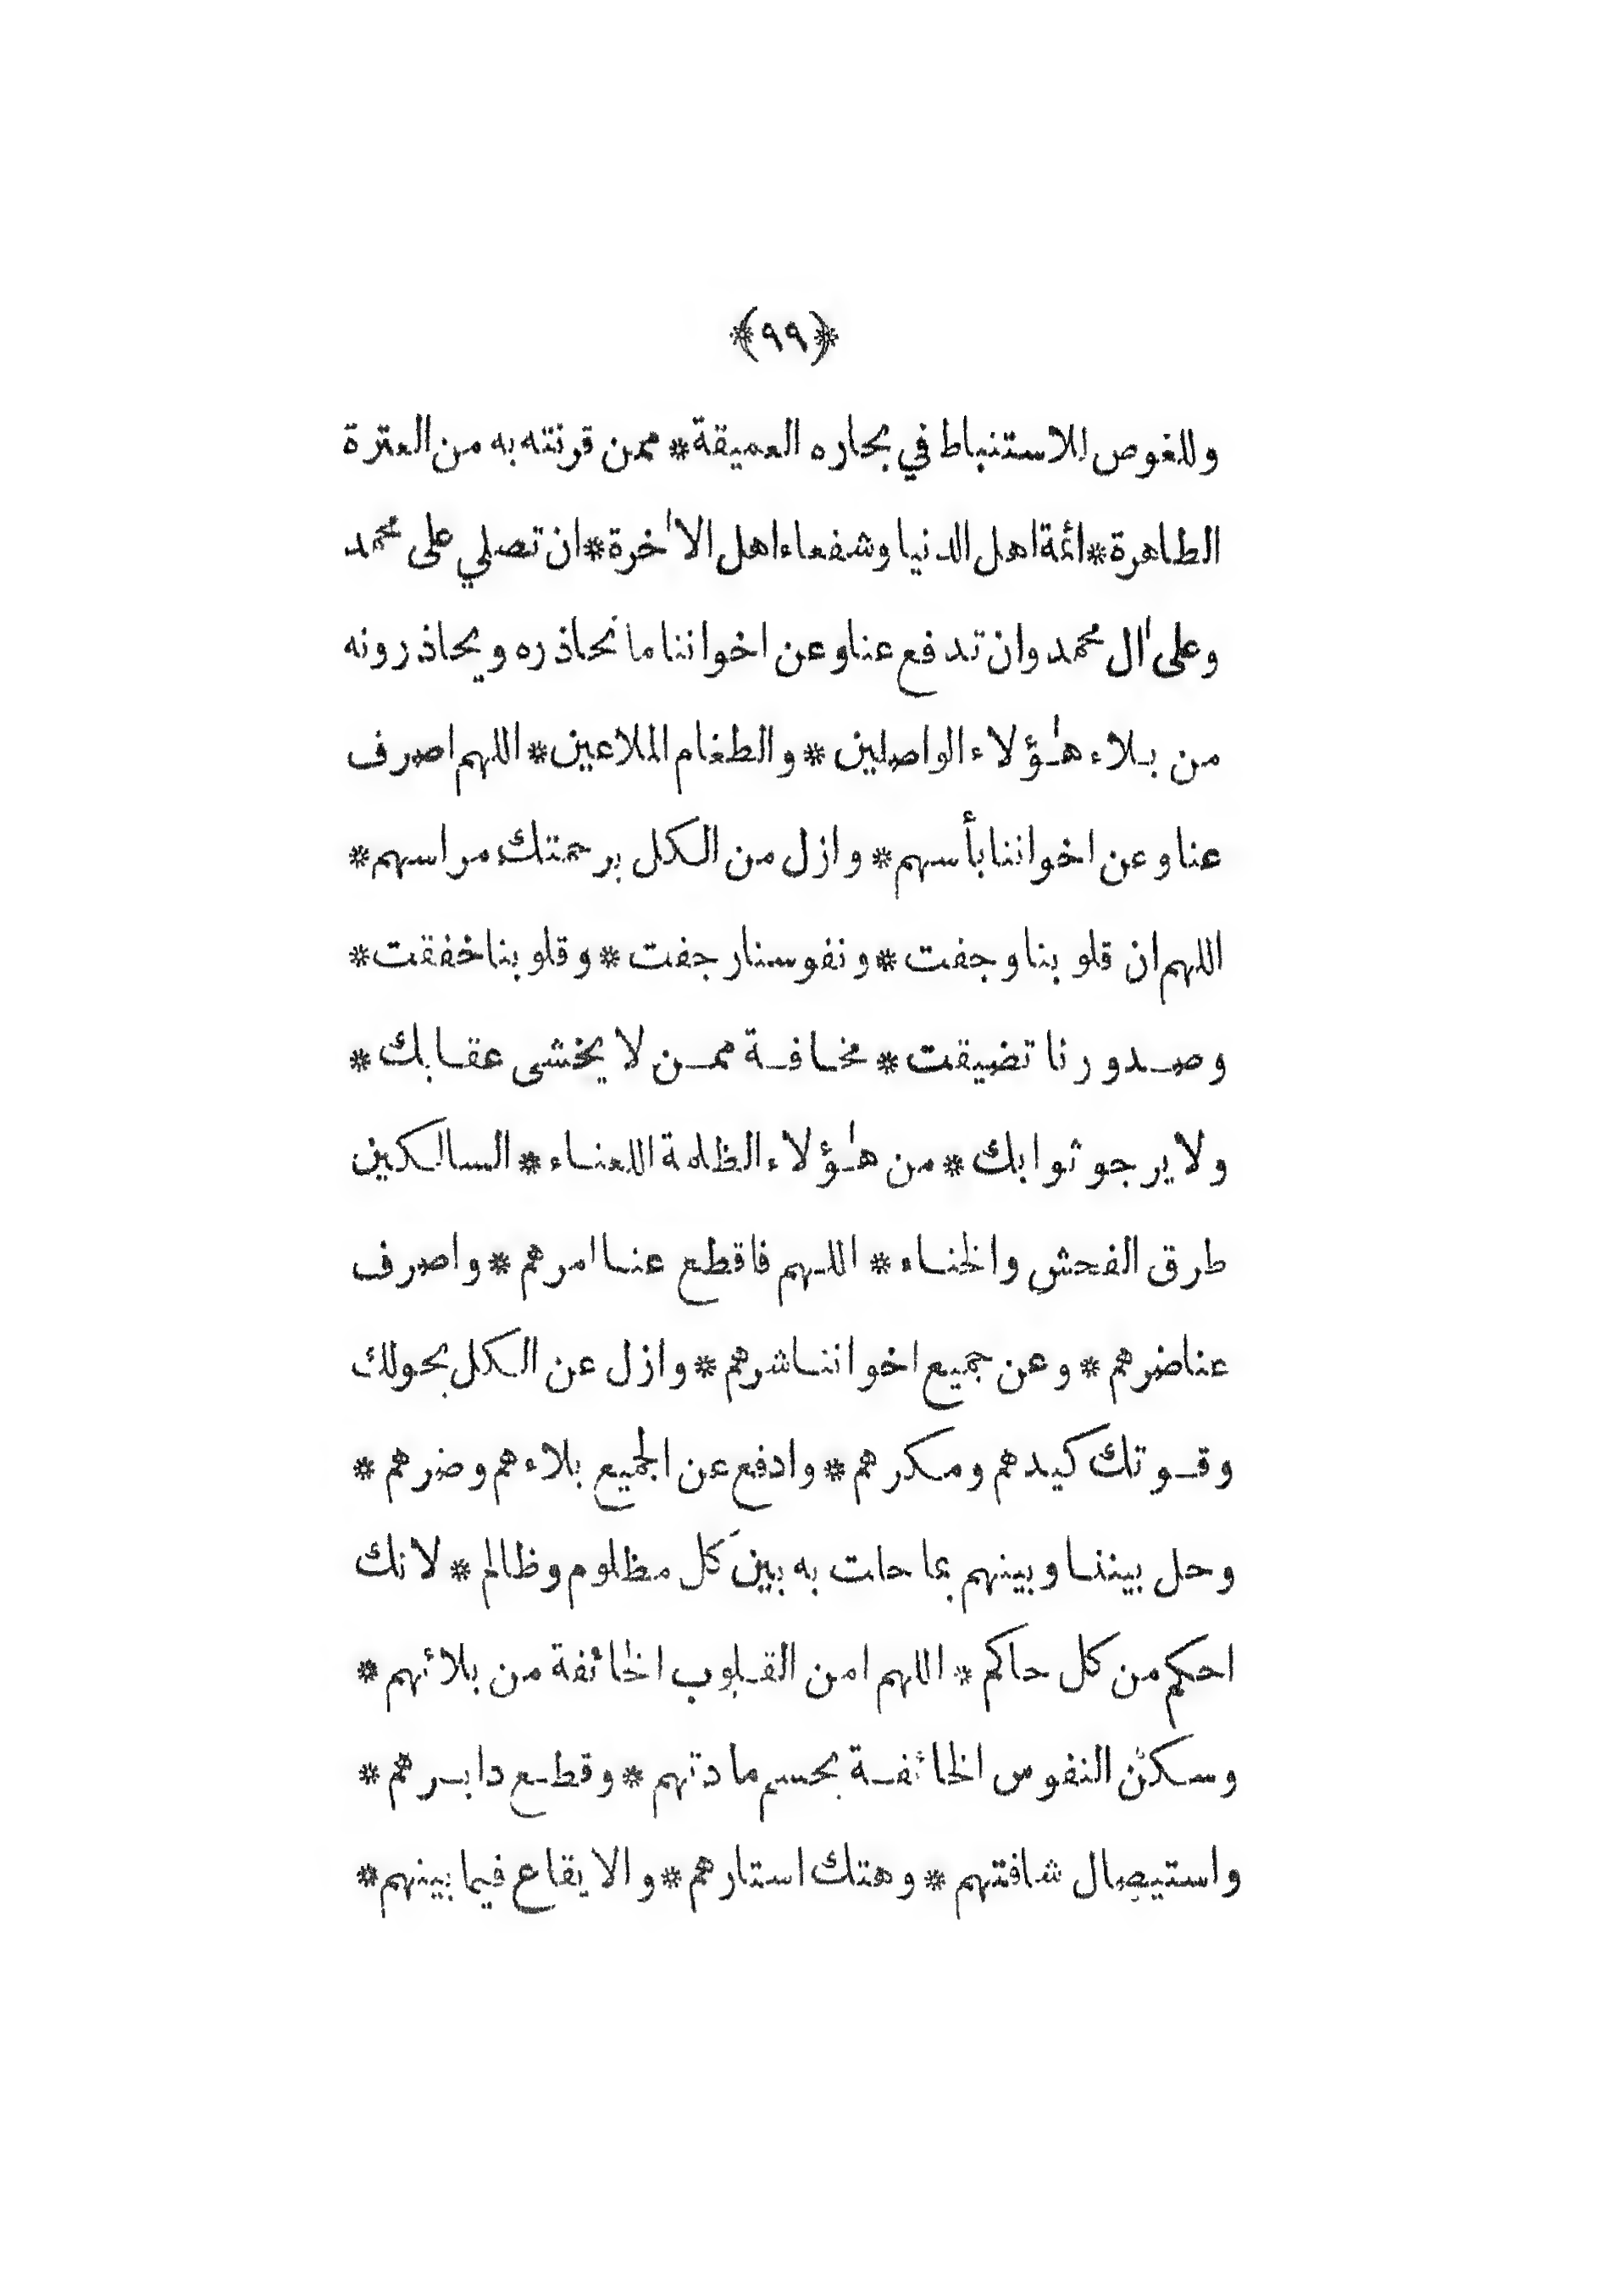 ﴿٩٩﴾
وللغوص للاستنباط في بحاره العميقة * ممن قرنته به من العترة
الطاهرة * ائمة اهل الدنيا وشفعاء اهل الاٰخرة * ان تصلي على محمد
وعلى اٰل محمد وان تدفع عنا وعن اخواننا ما نحاذره ويحاذرونه
من بلاء هٰؤلاء الواصلين * والطغام الملاعين * اللهم اصرف
عنا وعن اخواننا بأسهم * وازل من الكل برحمتك مراسهم *
اللهم ان قلوبنا وجفت * ونفوسنا رجفت * وقلوبنا خفقت *
وصدورنا تضيقت * مخافة ممن لا يخشى عقابك *
ولا يرجو ثوابك * من هٰؤلاء الظلمة اللعناء * السالكين
طرق الفحش والخناء * اللهم فاقطع عنا امرهم * واصرف
عنا ضرهم * وعن جميع اخواننا شرهم * وازل عن الكل بحولك
وقوتك كيدهم ومكرهم * وادفع عن الجميع بلاءهم وضرهم *
وحل بيننا وبينهم بما حلت به بينَ كل مظلوم وظالم * لانك
احكم من كل حاكم * اللهم امن القلوب الخائفة من بلائهم *
وسكن النفوس الخائفة بحسم مادتهم * وقطع دابرهم *
واستيصال شافتهم * وهتك استارهم * والايقاع فيما بينهم *